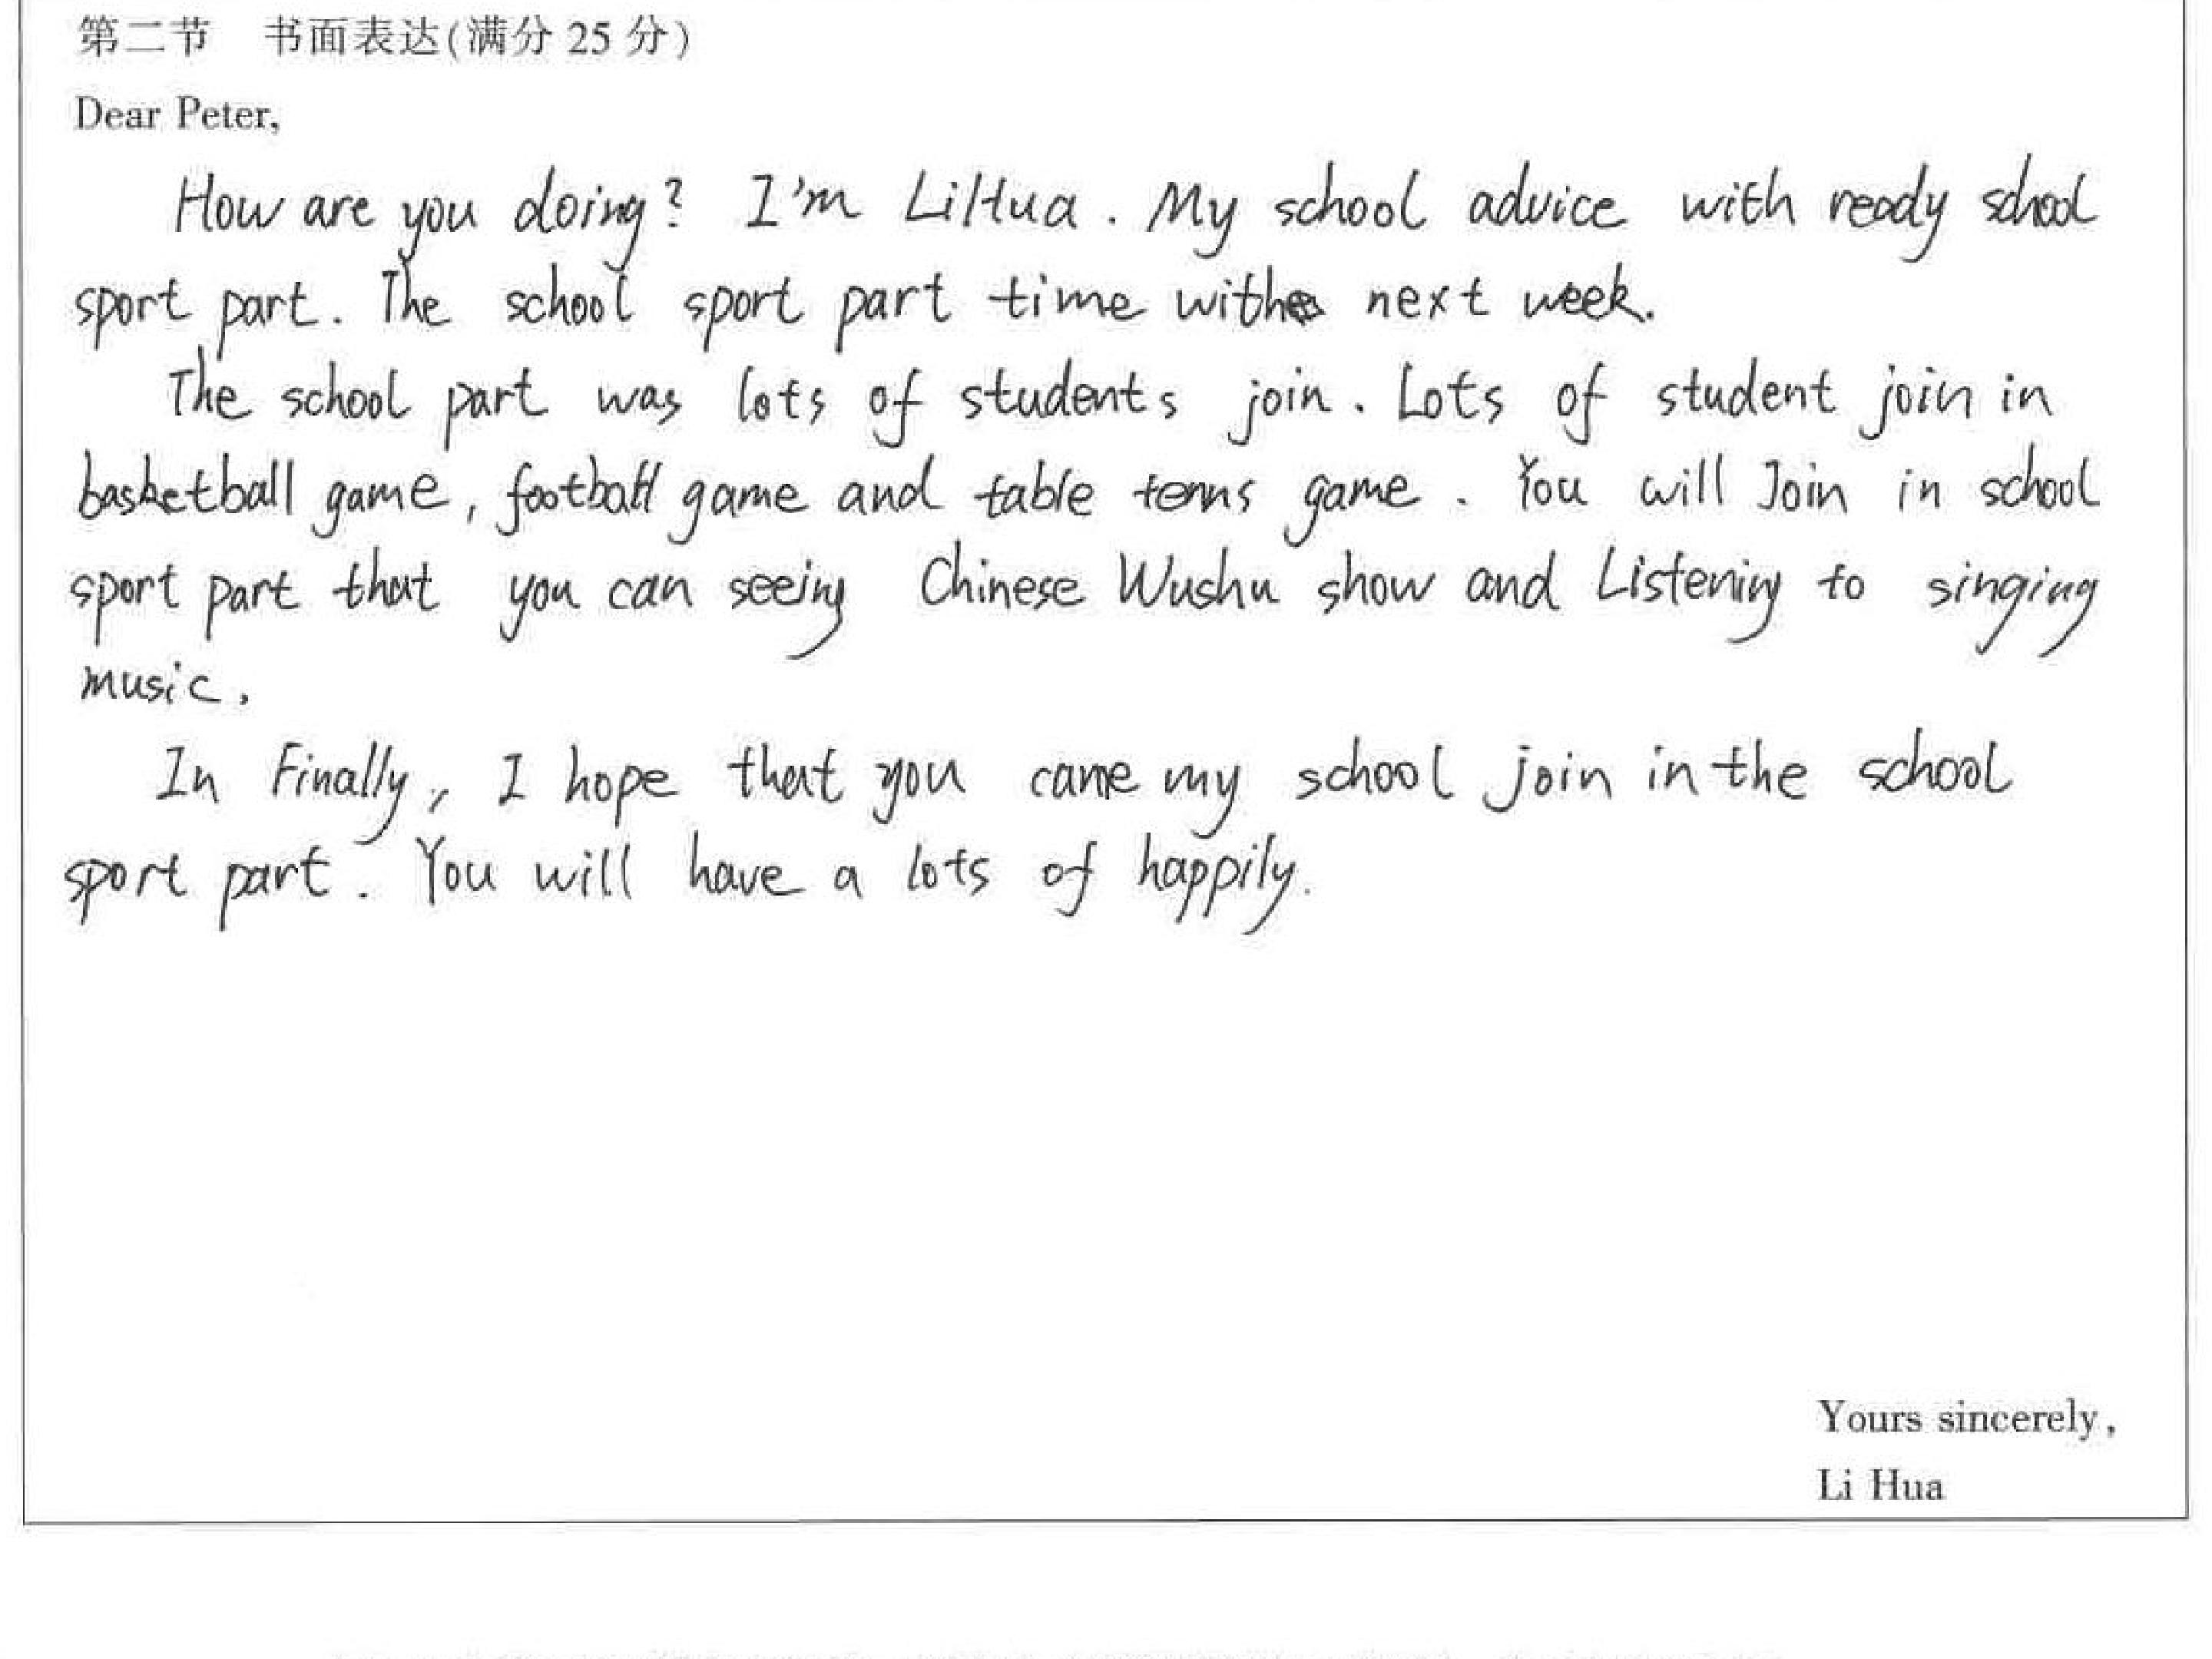 第二节 书面表达(满分 25 分)
Dear Peter,
How are you doing? I'm LiHua. My school advice with ready school
sport part. The school sport part time withe next week.
The school part was lots of students join. Lots of student join in
basketball game, football game and table tenns game. You will Join in school
sport part that you can seeing Chinese Wushu show and Listening to singing
music.
In Finally, I hope that you came my school join in the school
sport part. You will have a lots of happily.
Yours sincerely,
Li Hua